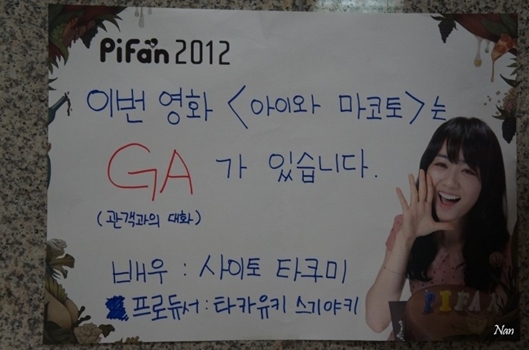 PiFan 2012
이번 영화 <아이와 마코토>는
GA 가 있습니다.
(관객과의 대화)
배우 : 사이토 타쿠미
프로듀서 : 타카유키 스기야키
PIFAN
Nan